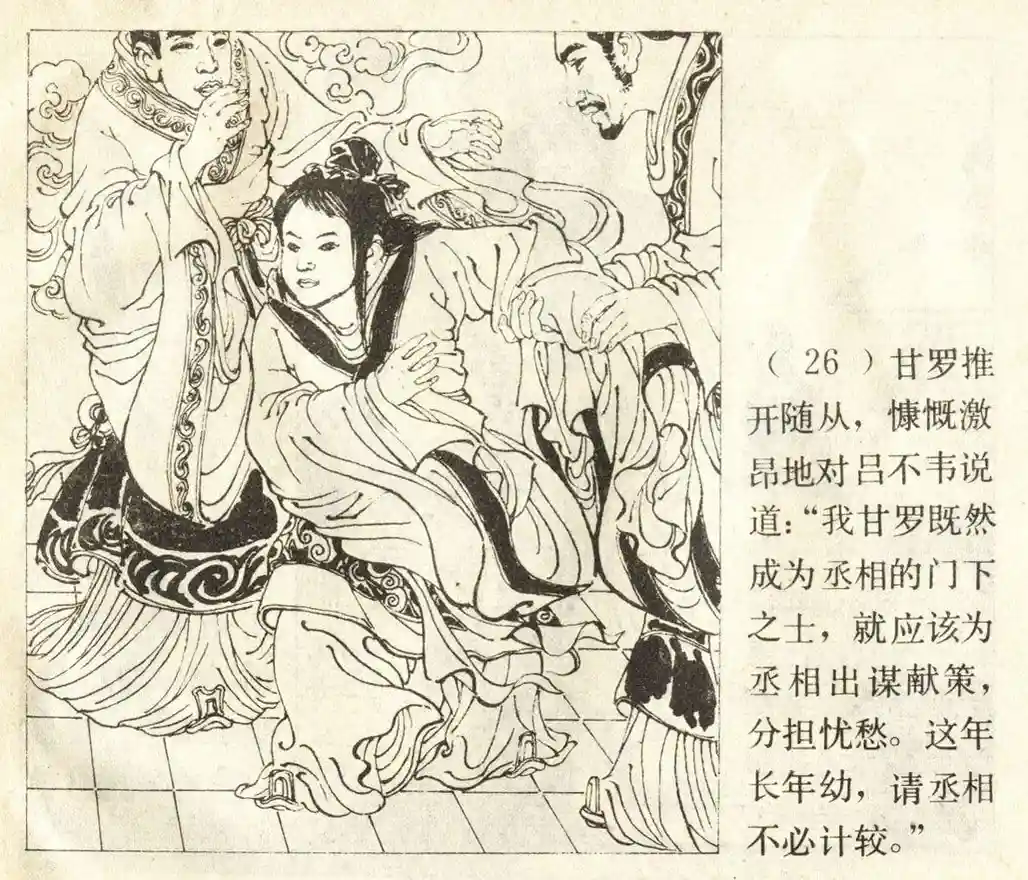 （ 26 ）甘罗推
开随从，慷慨激
昂地对吕不韦说
道：“我甘罗既然
成为丞相的门下
之士，就应该为
丞相出谋献策，
分担忧愁。这年
长年幼，请丞相
不必计较。”